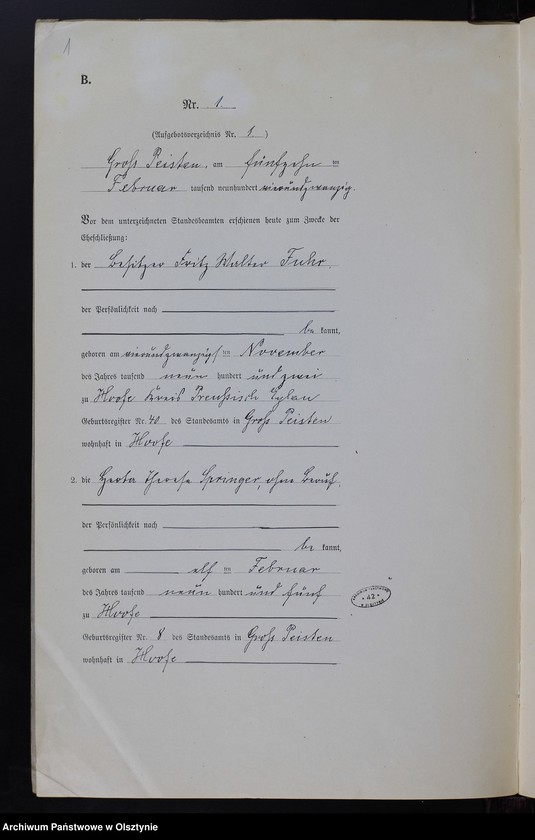 1
B.
Nr. 1.
(Aufgebotsverzeichnis Nr. 1)
Groß Peisten, am fünfzehn ten
Februar tausend neunhundert vierundzwanzig.
Vor dem unterzeichneten Standesbeamten erschienen heute zum Zwecke der
Eheschließung:
1. der Besitzer Fritz Walter Fuhr,
der Persönlichkeit nach
be kannt,
geboren am vierundzwanzigsten November
des Jahres tausend neun hundert und zwei
zu Hoofe Kreis Preußisch Eylau
Geburtsregister Nr. 40 des Standesamts in Groß Peisten
wohnhaft in Hoofe
2. die Herta Therese Springer, ohne Beruf,
der Persönlichkeit nach
be kannt,
geboren am elf ten Februar
des Jahres tausend neun hundert und fünf
zu Hoofe
Geburtsregister Nr. 8 des Standesamts in Groß Peisten
wohnhaft in Hoofe
42
Archiwum Państwowe w Olsztynie